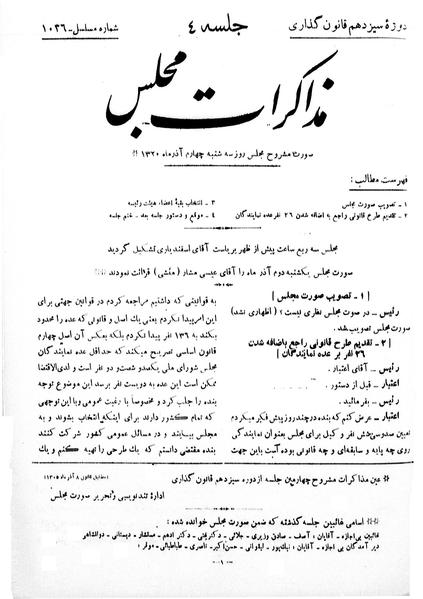 دورهٔ سیزدهم قانون گذاری
جلسه ٤
شماره مسلسل - ۱۰۳۶
مذاکرات مجلس
صورت مشروح مجلس روز سه شنبه چهارم آذرماه ۱۳۲۰
فهرست مطالب :
۱ - تصویب صورت مجلس
۲ - تقدیم طرح قانونی راجع باضافه شدن ۲۶ نفر بر عده نمایندگان
۳ - انتخاب بقیهٔ اعضاء هیئت رئیسه
۴ - موقع و دستور جلسه بعد - ختم جلسه
مجلس سه ربع ساعت پیش از ظهر بریاست آقای اسفندیاری تشکیل گردید
صورت مجلس یکشنبه دوم آذر ماه را آقای عیسی مشار (منشی) قرائت نمودند
[ ۱ - تصویب صورت مجلس ]
رئیس - در صورت مجلس نظری نیست؟ (اظهاری نشد)
صورت مجلس تصویب شد.
[ ۲ - تقدیم طرح قانونی راجع باضافه شدن
۲۶ نفر بر عده نمایندگان ]
رئیس - آقای اعتبار.
اعتبار - قبل از دستور.
رئیس - بفرمائید.
اعتبار - عرض کنم که بنده در چند روز پیش فکر میکردم
تعیین صد وسی وشش نفر و کیل برای مجلس بعنوان نمایندگی
روی چه پایه و سابقه‌ای و چه قانونی بوده است باین جهت
به قوانینی که داشتیم مراجعه کردم در قوانین جهتی برای
این امر پیدا نکردم یعنی یک اصل و قانونی که عده را محدود
بکند به ۱۳۶ نفر پیدا نکردم بلکه بعکس آن اصل چهارم
قانون اساسی تصریح میکند که حداقل عده نمایندگان
مجلس شورای ملی یکصد وشصت و دو نفر است و لدی‌الاقتضا
ممکن است این عده به دویست نفر برسد این موضوع توجه
بنده را جلب کرد و مخصوصاً با رغبت عمومی و با این توجهی
که تمام کشور دارند برای اینکه انتخاب بشوند و به
مجلس بیایند و در مسائل عمومی کشور شرکت کنند
بنده مقتضی دانستم که یک طرحی را تهیه کنم و یک
عین مذاکرات مشروح چهارمین جلسه از دوره سیزدهم قانون گذاری
(مطابق قانون ۸ آذر ماه ۱۳۰۵)
اداره تندنویسی و تحریر صورت مجلس
اسامی غائبین جلسه گذشته که ضمن صورت مجلس خوانده شده :
غائبین بی اجازه - آقایان : آصف - صادق وزیری - جلائی - دکتر ادهم - مسلفار - دبستانی - دولتشاهی
دیر آمدگان بی اجازه - آقایان : نیک‌پور - ناصری - طباطبائی - موقر :
- ۱ -